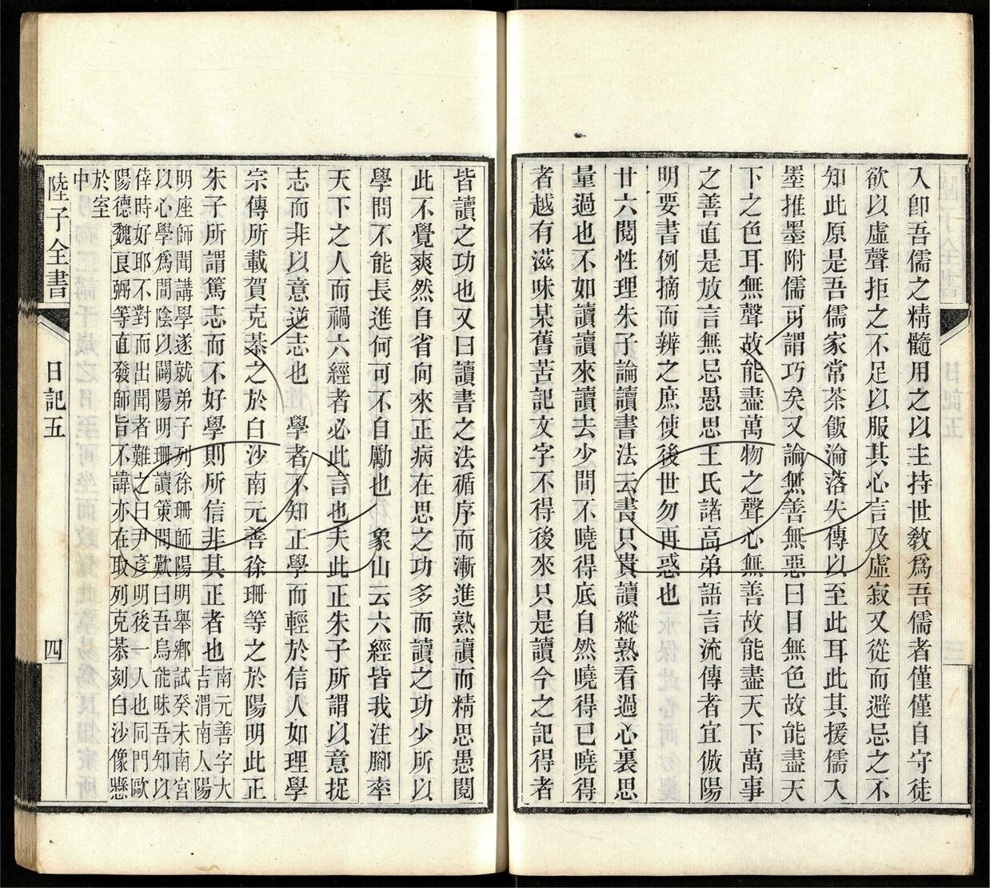 入卽吾儒之精髓用之以主持世敎爲吾儒者僅僅自守徒
欲以虛聲拒之不足以服其心言及虛寂又從而避忌之不
知此原是吾儒家常茶飯淪落失傳以至此耳此其援儒入
墨推墨附儒可謂巧矣又論無善無惡曰目無色故能盡天
下之色耳無聲故能盡萬物之聲心無善故能盡天下萬事
之善直是放言無忌愚思王氏諸高弟語言流傳者宜倣陽
明要書例摘而辨之庶使後世勿再惑也
廿六閱性理朱子論讀書法云書只貴讀縱熟看過心裏思
量過也不如讀讀來讀去少間不曉得底自然曉得已曉得
者越有滋味某舊苦記文字不得後來只是讀今之記得者
皆讀之功也又曰讀書之法循序而漸進熟讀而精思愚閱
此不覺爽然自省向來正病在思之功多而讀之功少所以
學問不能長進何可不自勵也　象山云六經皆我注腳率
天下之人而禍六經者必此言也夫此正朱子所謂以意捉
志而非以意逆志也　學者不知正學而輕於信人如理學
宗傳所載賀克恭之於白沙南元善徐珊等之於陽明此正
朱子所謂篤志而不好學則所信非其正者也
南元善字大
吉渭南人陽
明座師聞講學遂就弟子列徐珊師陽明舉鄉試癸未南宮
以心學爲問陰以闢陽明珊讀策問歎曰吾烏能昧吾知以
倖時好耶不對而出聞者難之曰尹彥明後一人也同門歐
陽德魏良弼等直發師旨不諱亦在取列克恭刻白沙像懸
於室
中
陸子全書
日記五
四